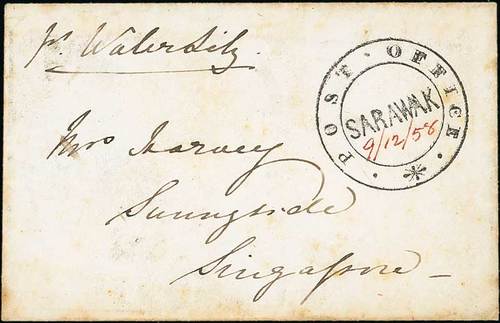 pr Water Lily.
POST · OFFICE ·
SARAWAK
9/12/58
Mrs Harvey
Sunnyside
Singapore –